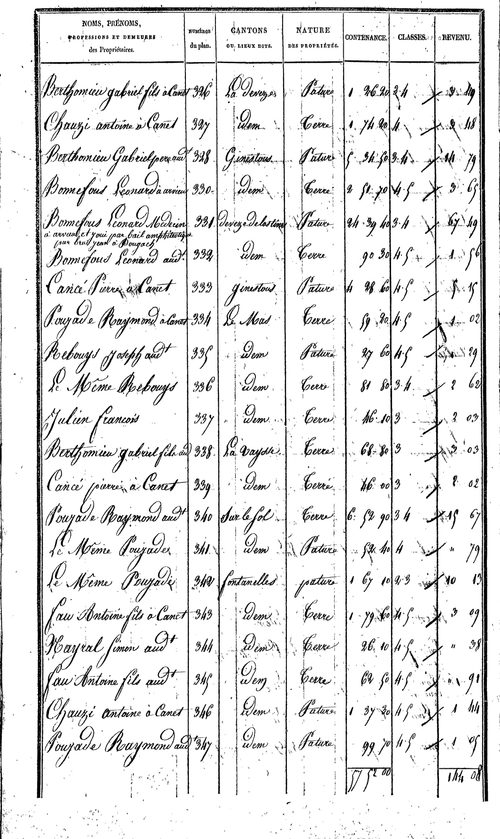 NOMS, PRÉNOMS, PROFESSIONS ET DEMEURES des Propriétaires. NUMÉROS du plan. CANTONS OU LIEUX DITS. NATURE DES PROPRIÉTÉS. CONTENANCE. CLASSES. REVENU.
Berthomieu gabriel fils à Canet 326 La deveze Pature 1 26 20 3 4 3 49
Chauzi antoine à Canet 327 idem Terre 1 74 20 4 3 48
Berthomieu Gabriel pere audt 328 Ginestous Pature 5 34 50 3 4 24 79
Bonnefous Léonard à arvieu 330 idem Terre 2 51 70 4 5 3 65
Bonnefous Léonard Médecin 331 deveze delestime Pature 24 39 40 3 4 67 49
à arvieu et joui par bail amphitéotique
par bras jean à Bougach
Bonnefous Leonard audt 332 idem Terre 90 30 4 5 1 56
Cancé Pierre à Canet 333 ginestous Pature 4 28 60 4 5 5 15
Poujade Raymond à Canet 334 Le Mas Terre 59 20 4 5 1 02
Rebouys Joseph audt 335 idem Pature 27 60 4 5 29
Le Même Rebouys 336 idem Terre 81 80 3 4 2 62
Julien francois 337 idem Terre 46 10 3 2 03
Berthomieu gabriel fils aud 338 La Vaysse Terre 68 80 3 3 03
Cancé pierre à Canet 339 idem Terre 46 00 3 2 02
Poujade Raymond audt 340 Sur le sol Terre 6 52 90 3 4 15 67
Le Même Poujade 341 idem Pature 52 40 4 " 79
Le Même Poujade 342 fontanelles pature 1 67 10 2 3 10 13
fau Antoine fils à Canet 343 idem Terre 1 79 60 4 5 3 09
Nayral simon audt 344 idem Terre 26 10 4 5 " 38
fau Antoine fils audt 345 idem Terre 62 50 4 5 " 91
Chauzi antoine à Canet 346 idem Pature 1 37 20 4 5 1 44
Poujade Raymond aud 347 idem Pature 99 70 4 5 1 05
57 52 00 144 08